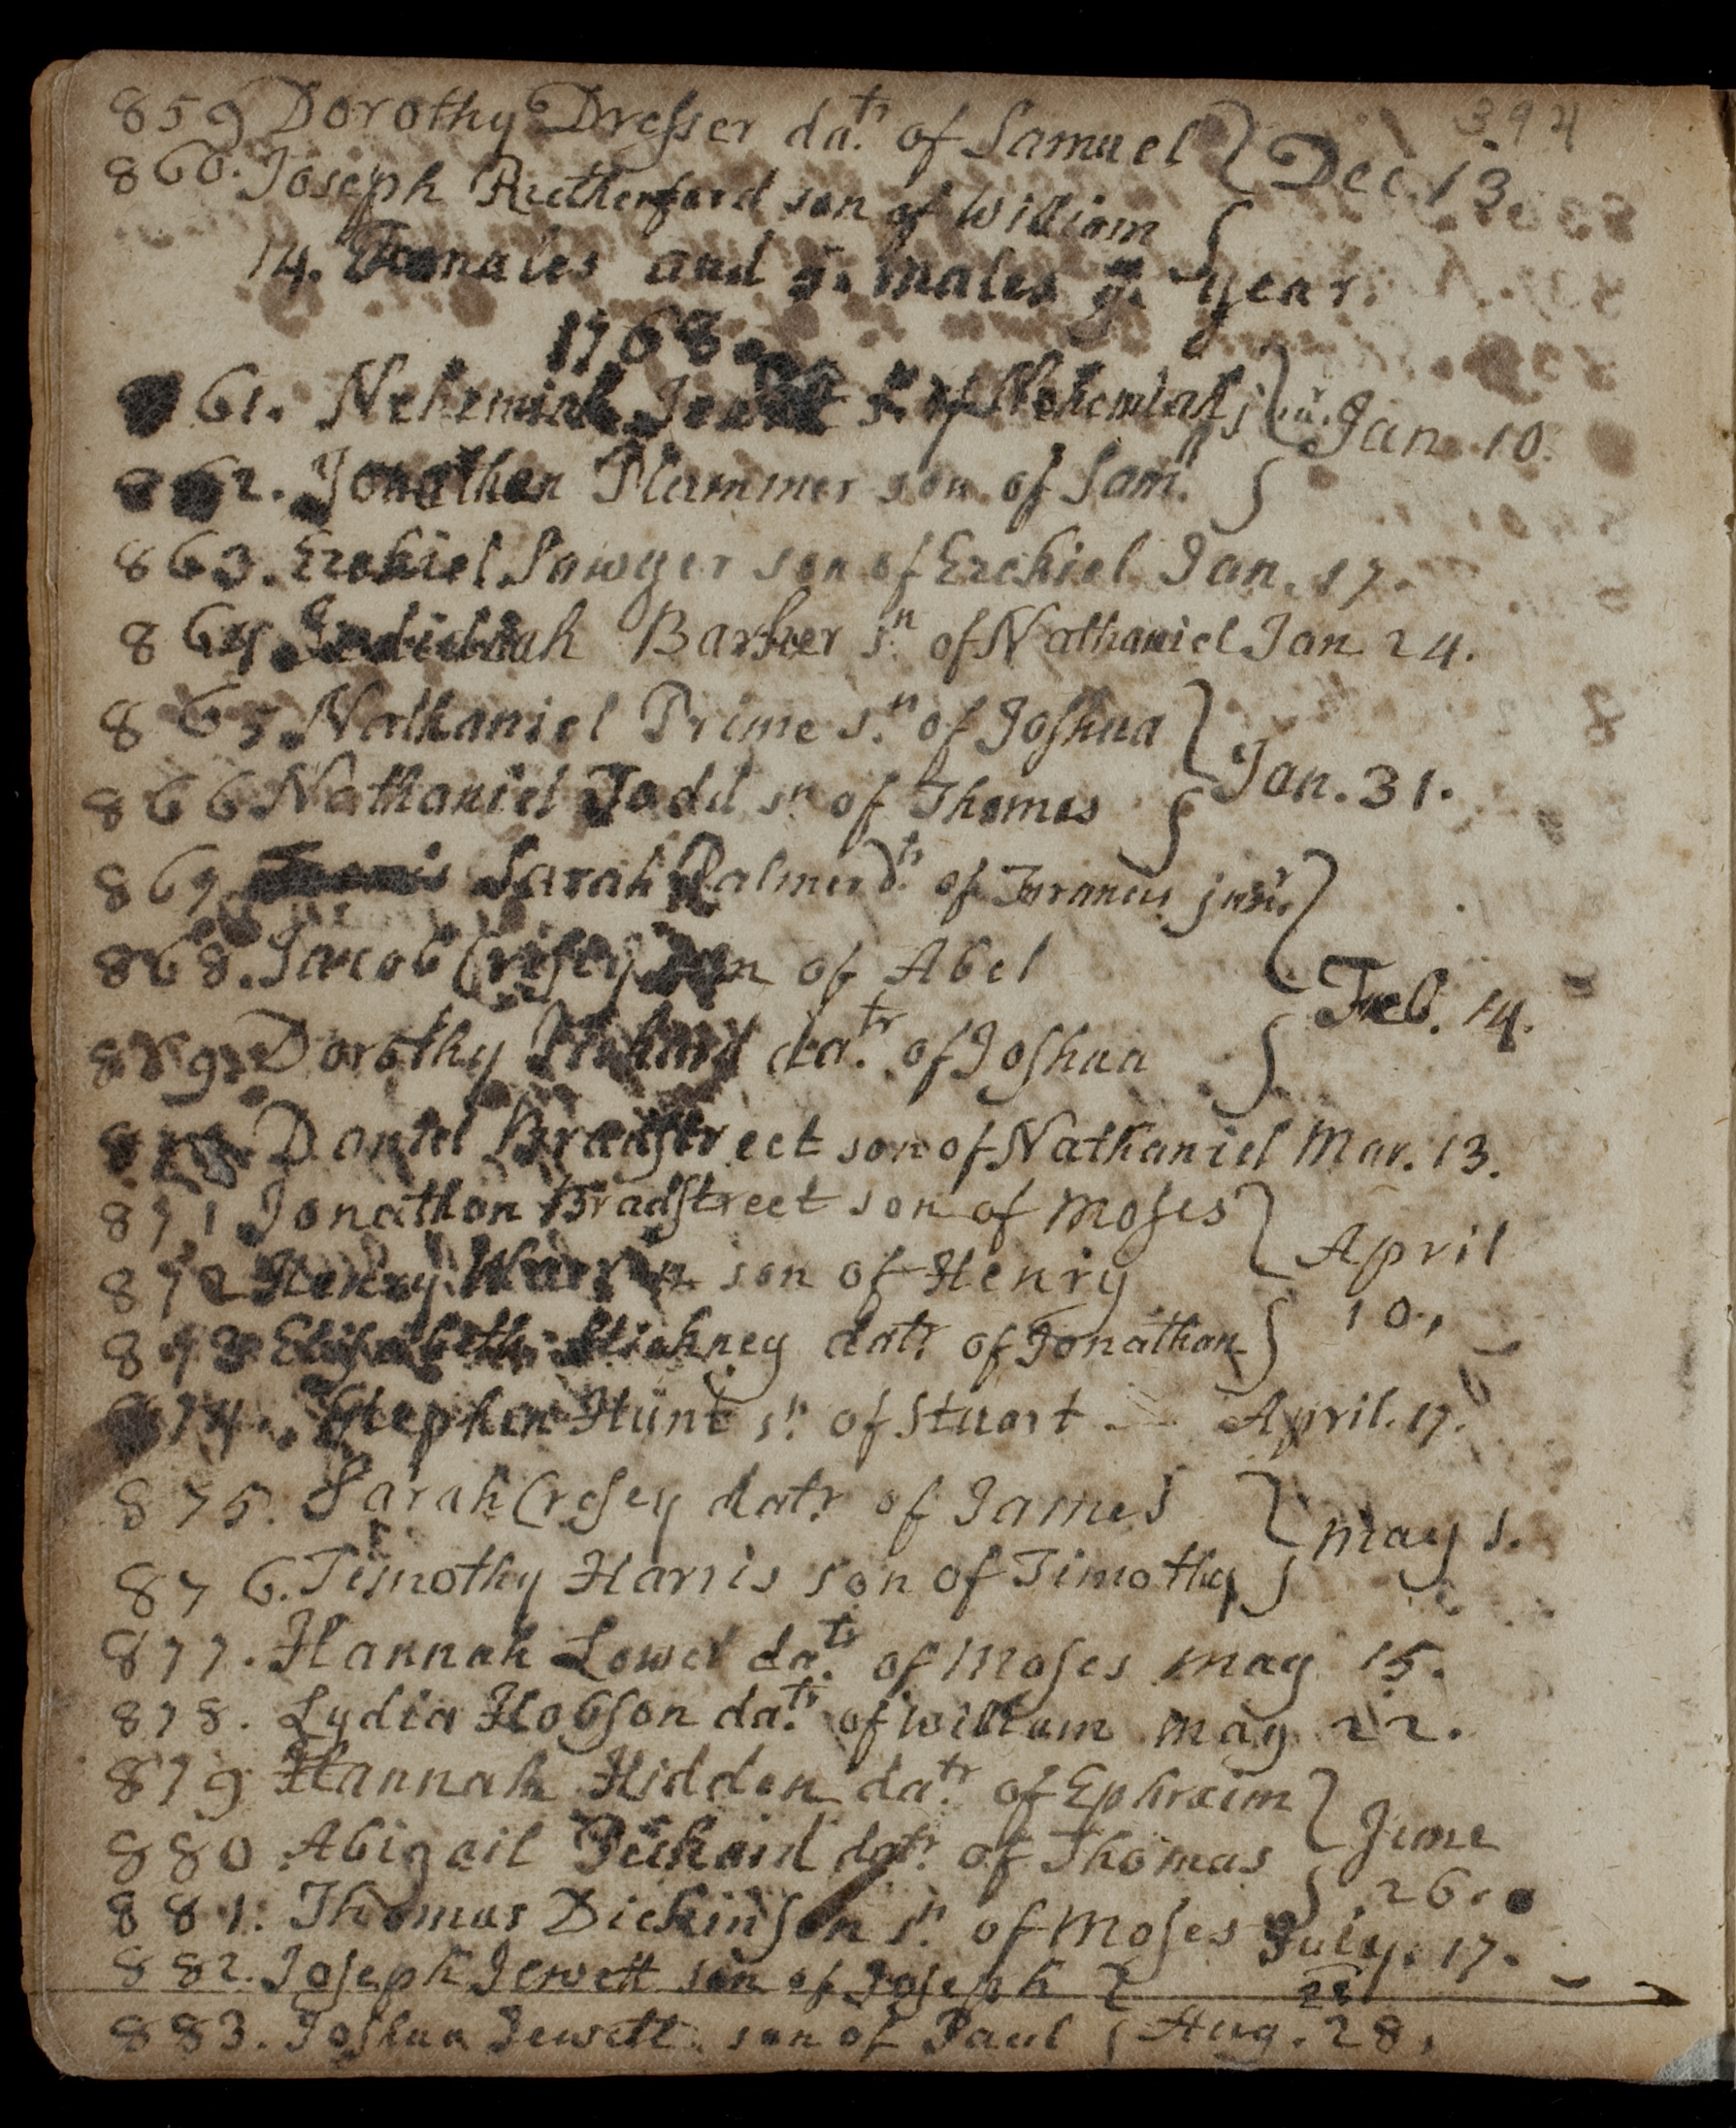 394
859 Dorothy Dresser da.tr of Samuel } Dec. 13
860. Joseph Rutherford son of William
14. Females and 5. males y. year.
1768.
861. Nehemiah Jewett s. of Nehemiah junr. } Jan 10.
862. Jonathan Plummer son of Saml.
863. Ezekiel Sawyer son of Ezekiel Jan. 17.
864. Jedidiah Barker s.n of Nathaniel Jan 24.
865. Nathaniel Prime s.n of Joshua } Jan. 31.
866 Nathaniel Todd sn of Thomas
867 Sarah Palmer d.tr of Francis junr. } Feb. 14.
868. Jacob Cresey son of Abel
869. Dorothy Pickard da.tr of Joshua
870 Daniel Bradstreet son of Nathaniel Mar. 13.
871 Jonathan Bradstreet son of Moses } April 10.
872 Henry Warren son of Henry
873 Elizabeth Stickney datr. of Jonathan
874. Stephen Hunt s.n of Stuart — April. 17.
875. Sarah Cresey datr. of James } may 1.
876. Timothy Harris son of Timothy
877. Hannah Lowel da.tr of Moses may 15.
878. Lydia Hobson da.tr of William may 22.
879 Hannah Hidden da.tr of Ephraim } June 26.
880 Abigail Pickard datr. of Thomas
881. Thomas Dickinson s.n of Moses July. 17.
882. Joseph Jewett son of Joseph }
883. Joshua Jewett son of Paul Aug. 28.